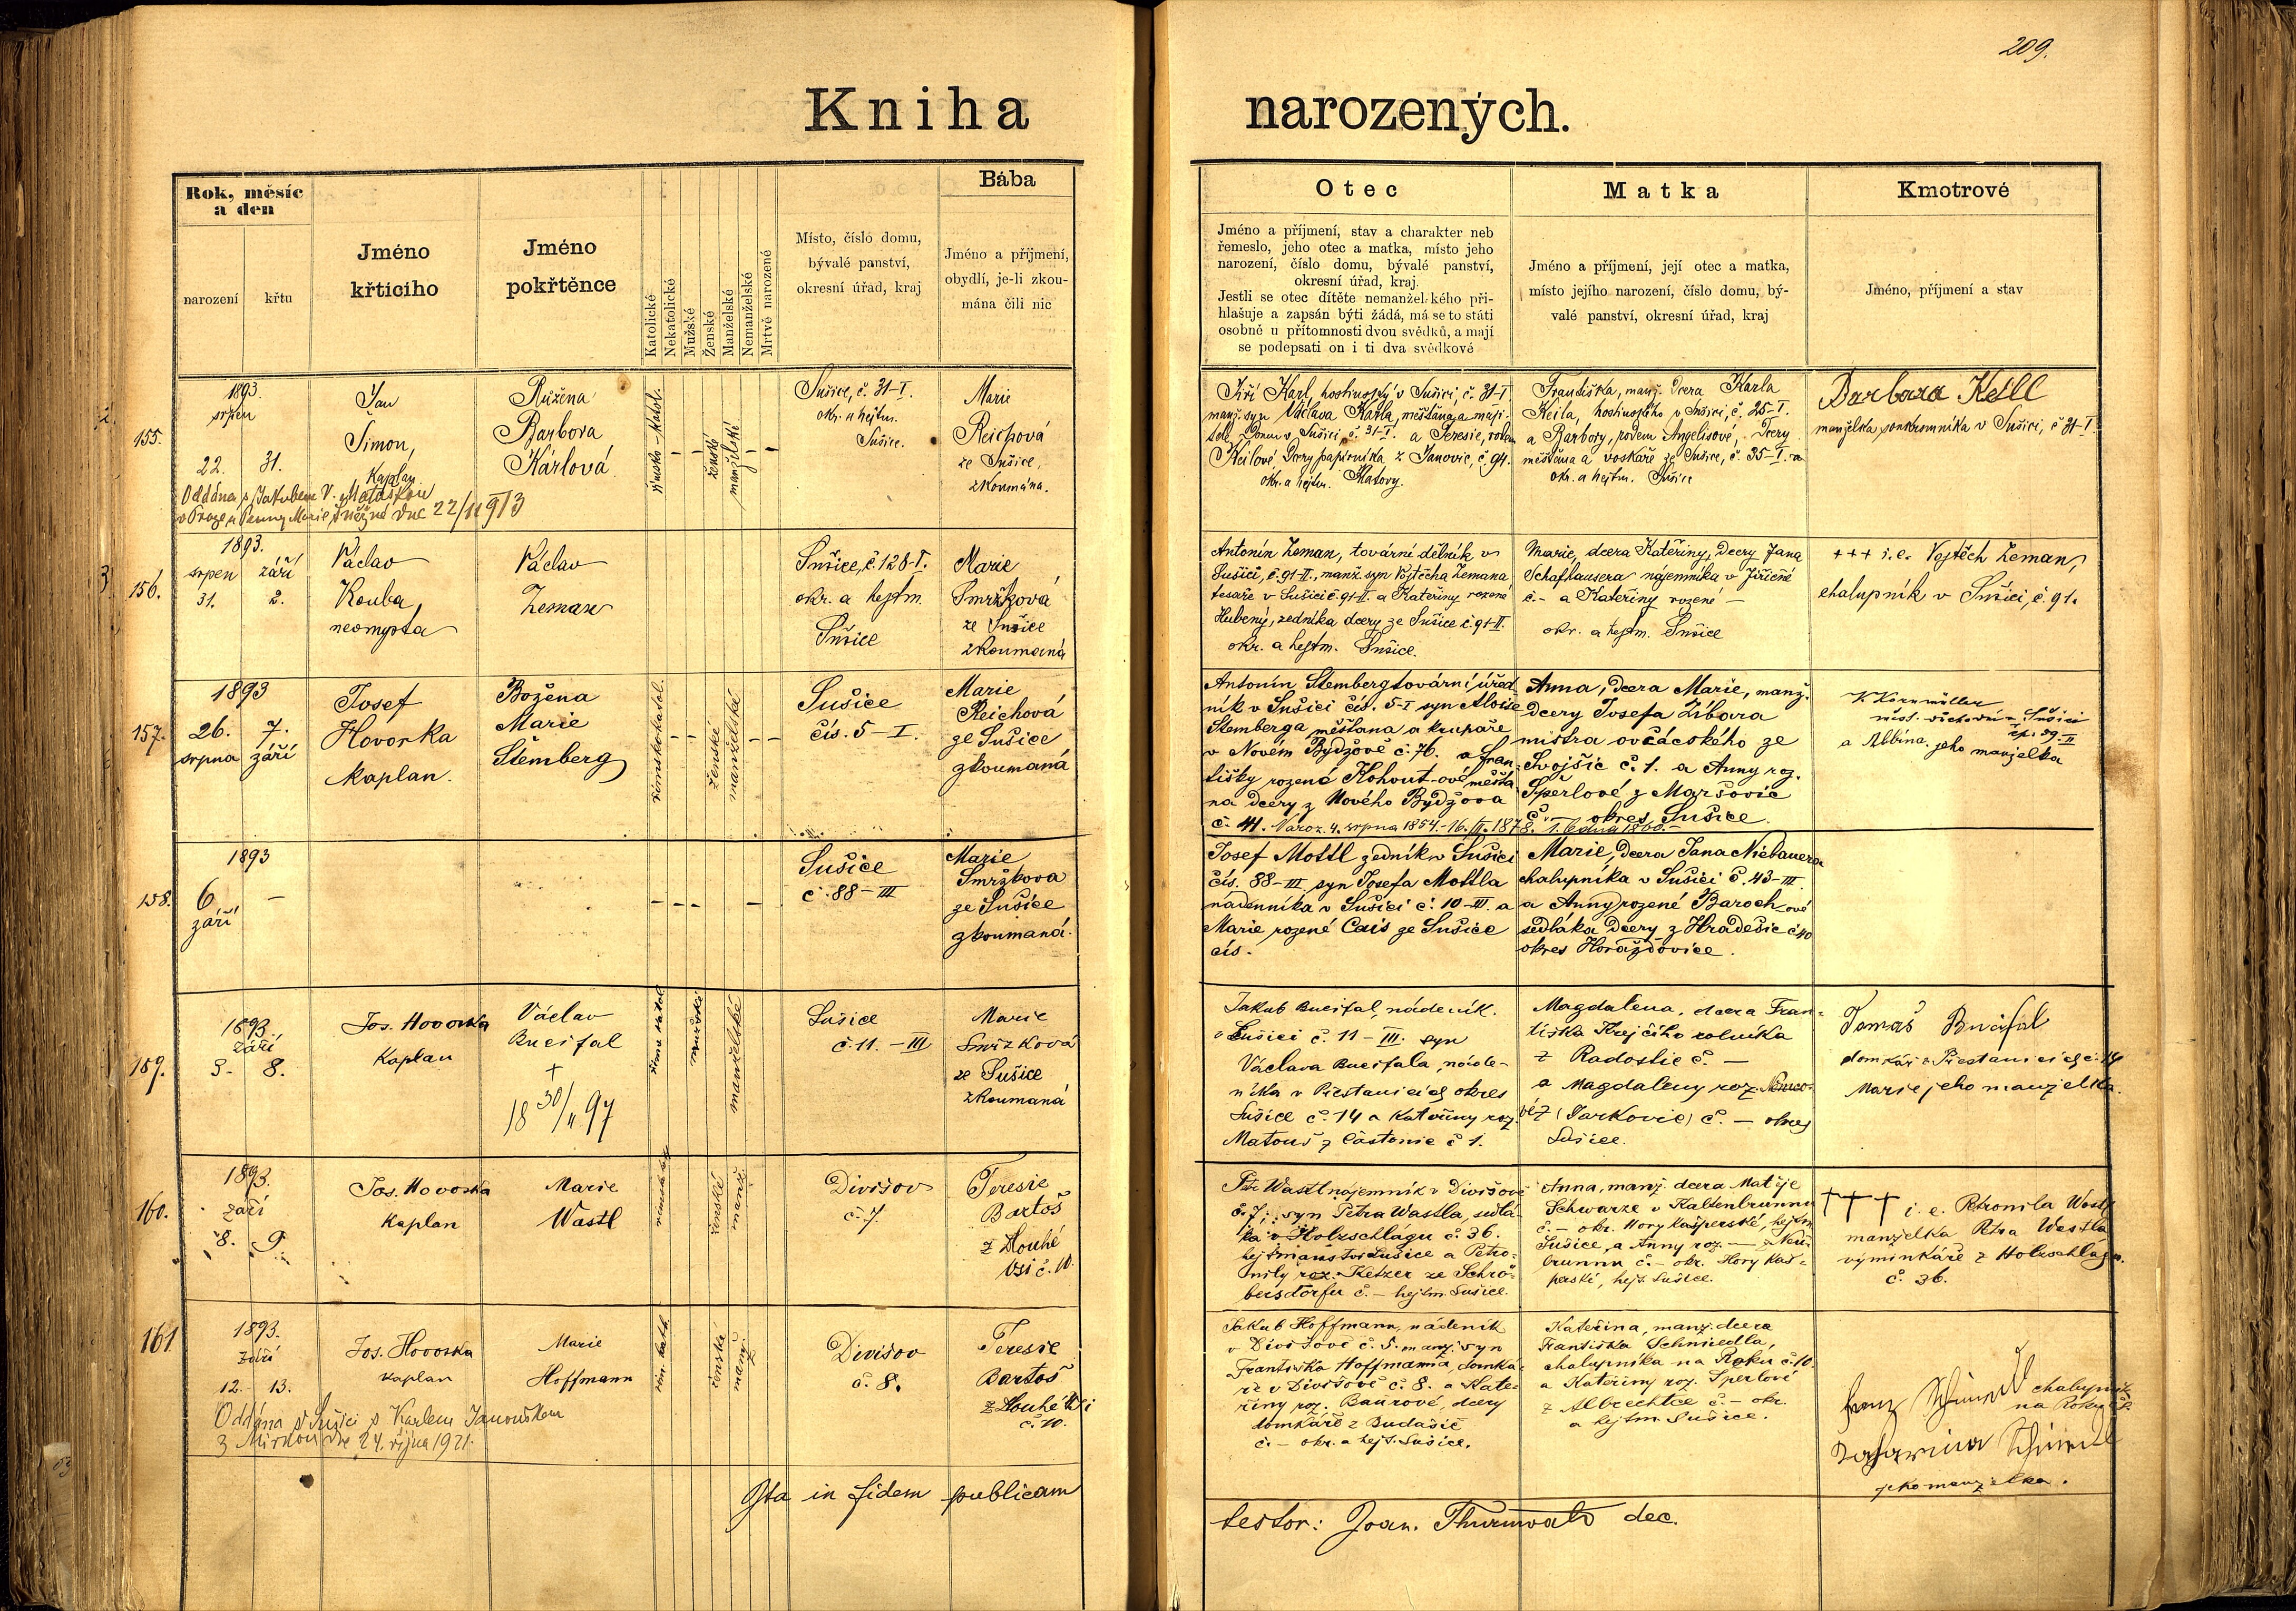 209.
Kniha narozených.
Rok, měsíc
a den
narození
křtu
Jméno
křticího
Jméno
pokřtěnce
Katolické
Nekatolické
Mužské
Ženské
Manželské
Nemanželské
Mrtvě narozené
Místo, číslo domu,
bývalé panství,
okresní úřad, kraj
Bába
Jméno a příjmení,
obydlí, je-li zkou-
mána čili nic
Otec
Jméno a příjmení, stav a charakter neb
řemeslo, jeho otec a matka, místo jeho
narození, číslo domu, bývalé panství,
okresní úřad, kraj.
Jestli se otec dítěte nemanželského při-
hlašuje a zapsán býti žádá, má se to státi
osobně u přítomnosti dvou svědků, a mají
se podepsati on i ti dva svědkové
Matka
Jméno a příjmení, její otec a matka,
místo jejího narození, číslo domu, bý-
valé panství, okresní úřad, kraj
Kmotrové
Jméno, příjmení a stav
155.
1893.
srpen
22. 31.
Jan
Šimon,
Kaplan
Růžena
Barbora
Kárlová
římsko-katol.
ženské
manželské
Sušice, č. 31-I.
okr. a hejtm.
Sušice.
Marie
Reichová
ze Sušice,
zkoumána.
Oddána s Jakubem V. Matáskou
v Praze u Panny Marie Sněžné dne 22/11 1913
Jiří Karl, hostinský v Sušici, č. 31-I
manž. syn Václava Karla, měšťana a maji-
tele domu v Sušici č. 31-I. a Teresie, rodem
Keilové, dcery papírníka z Janovic, č. 94.
okr. a hejtm. Klatovy.
Františka, manž. dcera Karla
Keila, hostinského v Sušici, č. 25-I.
a Barbory, rodem Angelisové, dcery
měšťana a voskaře ze Sušice, č. 35-I.
okr. a hejtm. Sušice
Barbara Keill
manželka soukromníka v Sušici, č 31-I
156.
1893.
srpen září
31. 2.
Václav
Kouba,
neomysta
Václav
Zeman
Sušice, č. 128-I.
okr. a hejtm.
Sušice
Marie
Smržková
ze Sušice
zkoumaná
Antonín Zeman, tovární dělník v
Sušici, č. 91-II., manž. syn Vojtěcha Zemana
tesaře v Sušici č 91-II. a Kateřiny rozené
Hubený, zedníka dcery ze Sušice č. 91-II.
okr. a hejtm. Sušice.
Marie, dcera Kateřiny, dcery Jana
Schafhausera nájemníka v Jiřičné
č.- a Kateřiny rozené —
okr. a hejtm. Sušice
+++ i. e. Vojtěch Zeman,
chalupník v Sušici, č. 91.
157.
1893
26. 7.
srpna září
Josef
Hovorka
kaplan.
Božena
Marie
Štemberg
římskokatol.
ženské
manželské
Sušice
čís. 5 - I.
Marie
Reichová
ze Sušice
zkoumaná
Antonín Stemberg tovární úřed-
ník v Sušici čís. 5-I syn Aloise
Stemberga měšťana a krupaře
v Novém Bydžově č. 76. a Fran-
tišky rozené Kohout-ové měšťa-
na dcery z Nového Bydžova
č. 41. Naroz. 4. srpna 1854.-16./II. 1878.
Anna, dcera Marie, manž.
dcery Josefa Zíbara
mistra ovčáckého ze
Svojšic č. 1. a Anny roz.
Šperlové z Maršovic
č. okres Sušice.
K. Kornmüller
Sušici
čp. 99-II
a Albína jeho manželka
158.
1893
6 —
září
Sušice
č. 88-III
Marie
Smržkova
ze Sušice
zkoumaná.
Josef Mottl zedník v Sušici
čís. 88-III syn Josefa Mottla
nádenníka v Sušici č. 10-III. a
Marie rozené Cais ze Sušice
čís.
Marie, dcera Jana Niebauera
chalupníka v Sušici č. 43-III.
a Anny rozené Baroch-ové
sedláka dcery z Hradešic č 40
okres Horažďovice.
159.
1893.
září
3. 8.
Jos. Hovorka
Kaplan
Václav
Bucifal
+
18 30/11 97
říms katol.
mužské
manželské
Sušice
č. 11. - III
Marie
Smržková
ze Sušice
zkoumaná
Jakub Bucifal, nádeník.
v Sušici č. 11-III. syn
Václava Bucifala, náde-
níka v Přestanicích okres
Sušice č. 14 a Kateřiny roz.
Matouš z Částonic č 1.
Magdalena, dcera Fran-
tiška Krejčího rolníka
z Radostic č. —
a Magdaleny roz. Němco-
vé z (Jarkovic) č. — okres
Sušice.
Tomáš Bucifal
domkář v Přestanicích č. 14
Marie jeho manželka.
160.
1893.
září
8. 9.
Jos. Hovorka
Kaplan
Marie
Wastl
ženské
manž.
Divišov
č. 7.
Teresie
Bartoš
z Dlouhé
Vsi č. 10.
Petr Wastl nájemník v Divišově
č. 7, syn Petra Wastla, sedlá-
ka v Holzschlägu č. 36.
hejtmanství Sušice a Petro-
nily roz. Ketzer ze Schrö-
bersdorfu č. — hejtm. Sušice.
Anna, manž. dcera Matěje
Schwarze v Kaltenbrunnu
č. — okr. Hory Kašperské, hejtm.
Sušice, a Anny roz. — z Neu-
brunnu č. — okr. Hory Kaš-
perské, hejt. Sušice.
+++ i. e. Petronila Wastl
manželka Petra Wastla
výminkáře z Holzschlagu.
č. 36.
161
1893.
září
12. 13.
Jos. Hovorka
kaplan
Marie
Hoffmann
řím. kath.
ženská
manž.
Divišov
č. 8.
Teresie
Bartoš
z Dlouhé Vsi
č. 10.
Oddána v Sušici s Karlem Janouškem
z Mirkou dne 24. října 1921.
Jakub Hoffmann, nádeník
v Divišově č. 5. manž. syn
Františka Hoffmanna, domká-
ře v Divišově č. 8. a Kate-
řiny roz. Baurové, dcery
domkáře z Budašic
č. — okr. a hejt. Sušice.
Kateřina, manž. dcera
Františka Schmiedla,
chalupníka na Roku č. 10
a Kateřiny roz. Sperlové
z Albrechtce č. — okr.
a hejtm. Sušice.
Franz chalupník
na Roku
Katharina
jeho manželka.
Ita in fidem publicam
testor: Joan. Thurnwald dec.